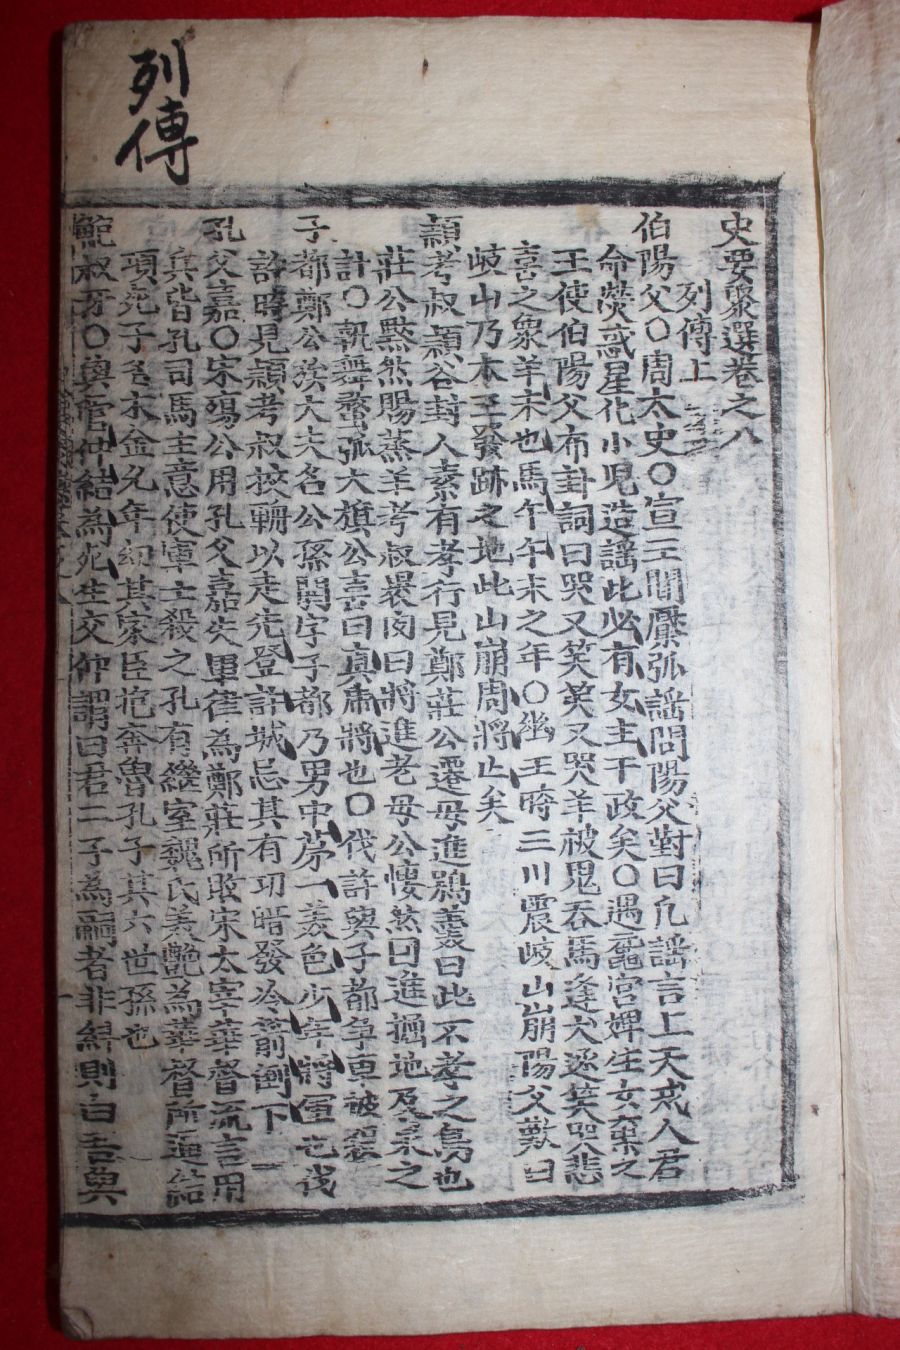 列傳
史要聚選卷之八
列傳上
伯陽父○周太史○宣王聞檿弧謠問陽父對曰凡謠言上天戒人君
命熒惑星化小兒造謠此必有女主干政矣○遇龍宮婢生女棄之
王使伯陽父布卦詞曰哭又笑笑又哭羊被鬼吞馬逢犬逐笑哭悲
喜之象羊未也馬午午未之年○幽王時三川震岐山崩陽父歎曰
岐山乃本王發跡之地此山崩周將亡矣
穎考叔穎谷封人素有孝行見鄭莊公遷母進鴞羹曰此不孝之鳥也
莊公黙然賜蒸羊考叔褁肉曰將進老母公悽然曰進掘地及泉之
計○執舞蝥弧大旗公喜曰眞虎將也○伐許與子都爭車
子都鄭公族大夫名公孫閼字子都乃男中第一美色少年將軍也伐
許時見穎考叔挾輈以走先登許城忌其有功暗發冷箭倒下
孔父嘉○宋殤公用孔父嘉失軍律爲鄭莊所敗宋太宰華督流言用
兵皆孔司馬主意使軍士殺之孔有繼室魏氏美艶爲華督所
頂死子名木金父年幼其家臣抱奔魯孔子其六世孫也
鮑叔牙○與管仲結爲死生交仲謂曰君二子爲嗣者非糾則白吾與